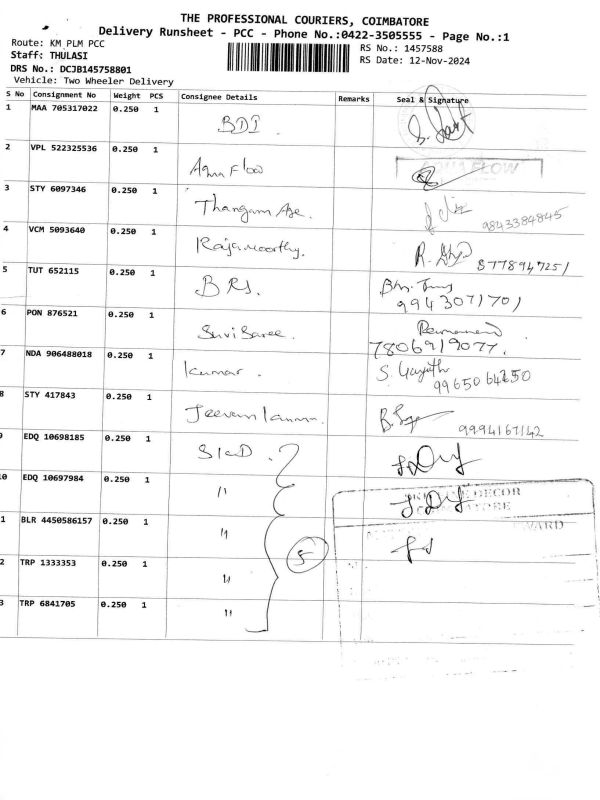 THE PROFESSIONAL COURIERS, COIMBATORE
Delivery Runsheet - PCC - Phone No.:0422-3505555 - Page No.:1
Route: KM PLM PCC
RS No.: 1457588
Staff: THULASI
RS Date: 12-Nov-2024
DRS No.: DCJB145758801
Vehicle: Two Wheeler Delivery
S No Consignment No Weight PCS Consignee Details Remarks Seal & Signature
1 MAA 705317022 0.250 1 BDI
2 VPL 522325536 0.250 1 Aqua Flow AQUA FLOW
3 STY 6097346 0.250 1 Thangam 9843384845
4 VCM 5093640 0.250 1 Rajamoorthy. R. 8778947251
5 TUT 652115 0.250 1 BRS. 9943071701
6 PON 876521 0.250 1 Suvi Saree. 7806919077.
7 NDA 906488018 0.250 1 Kumar. S. Gayathri
8 STY 417843 0.250 1 9994167142
9 EDQ 10698185 0.250 1
0 EDQ 10697984 0.250 1 " DECOR
1 BLR 4450586157 0.250 1 "
2 TRP 1333353 0.250 1 " 5
3 TRP 6841705 0.250 1 "